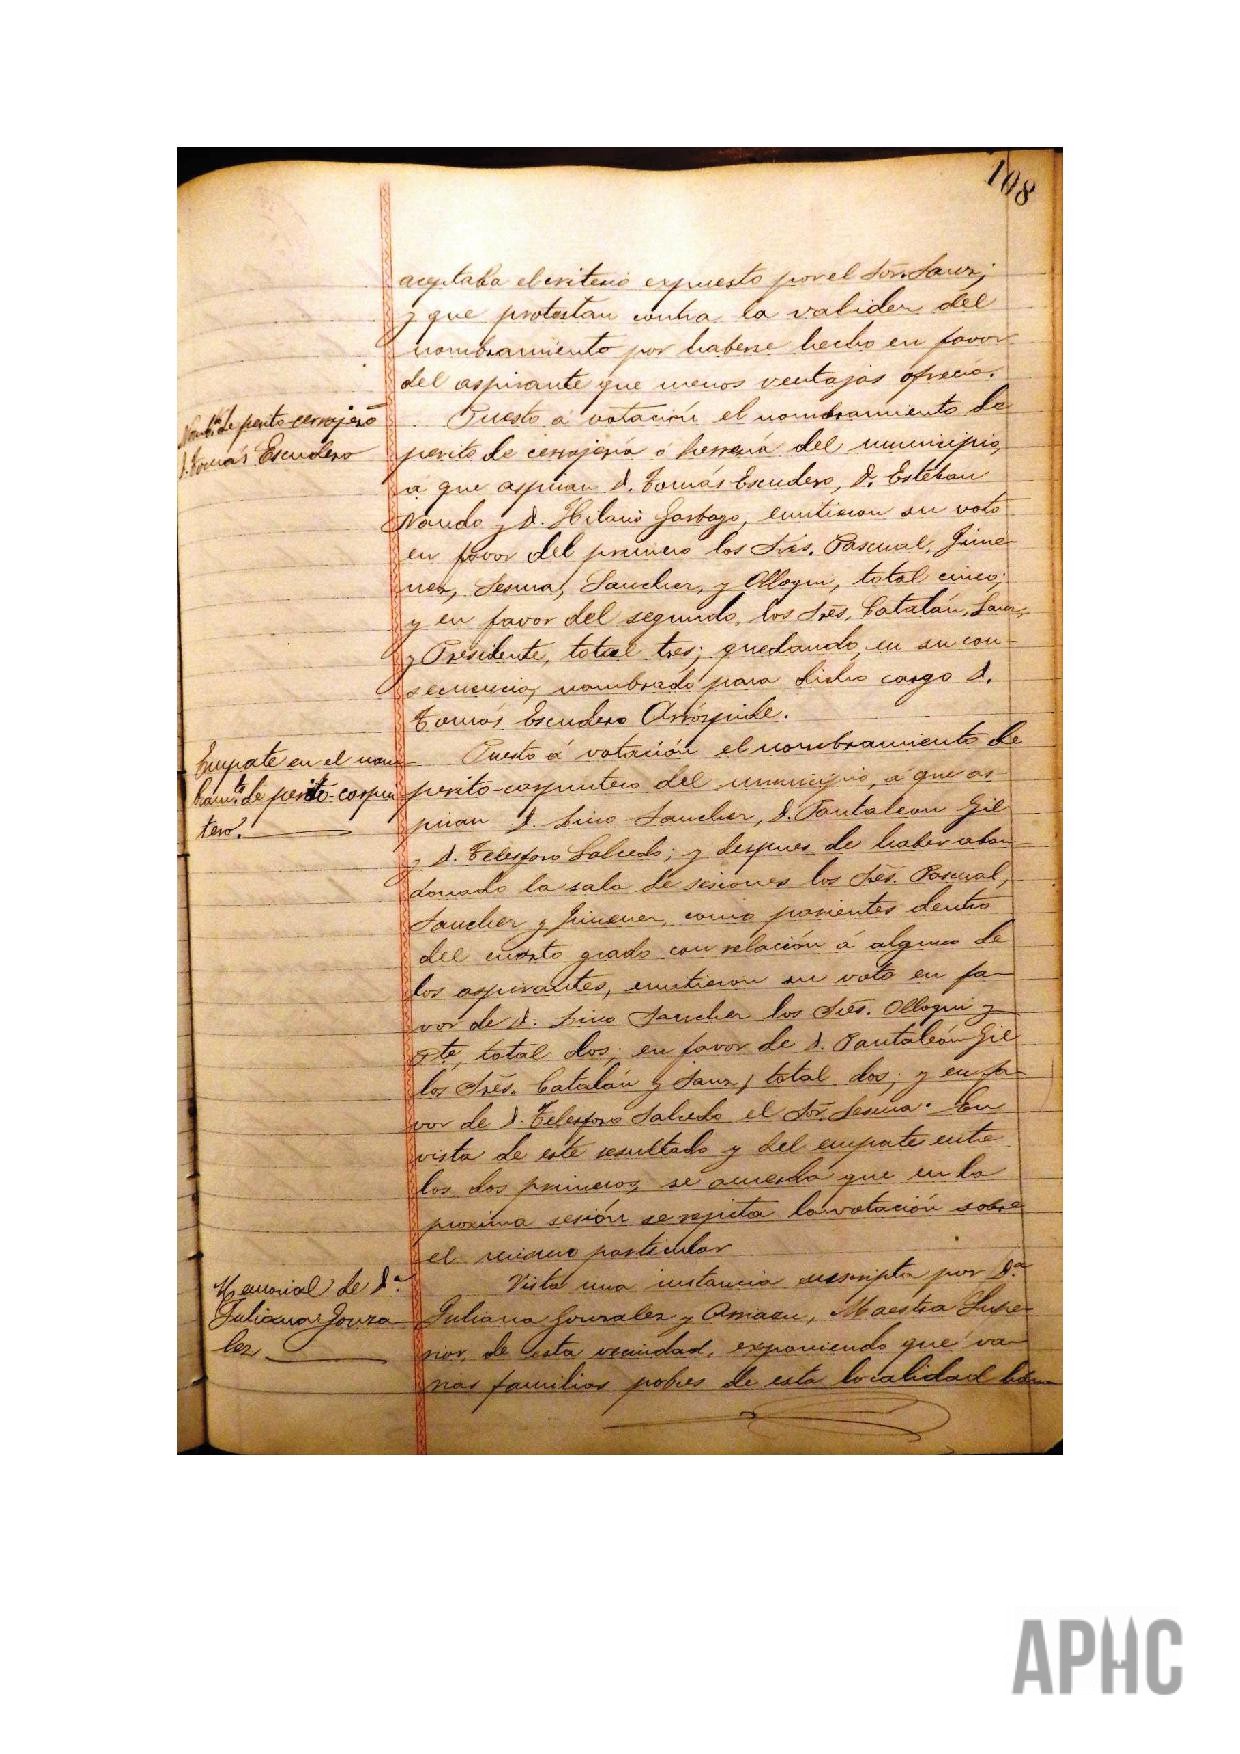 108
aceptaba el criterio expuesto por el Sor. Sanz;
y que protestan contra la validez del
nombramiento por haberse hecho en favor
del aspirante que menos ventajas ofrecia.
Nombto. de perito cerrajero
D. Tomás Escudero
Puesto á votación el nombramiento de
perito de cerrajería ó herrería del municipio,
á que aspiran D. Tomás Escudero, D. Esteban
y D. Hilario Garbayo, emitieron su voto
en favor del primero los Srés. Pascual, Jime-
nez, Sesma, Sanchez, y Olloqui, total cinco;
y en favor del segundo, los Srés. Catalán, Sanz,
y Presidente, total tres; quedando, en su con-
secuencia, nombrado para dicho cargo D.
Tomás Escudero Arróspide.
Empate en el nom-
bramto. de perito-carpin-
tero.
Puesto á votación el nombramiento de
perito-carpintero del municipio, á que as-
piran D. Lino Sanchez, D. Pantaleon Gil
y D. Telesforo Salcedo; y despues de haber aban-
donado la sala de sesiones los Srés. Pascual,
Sanchez y Jimenez, como parientes dentro
del cuarto grado con relación á alguno de
los aspirantes, emitieron su voto en fa-
vor de D. Lino Sanchez los Srés. Olloqui y
Pte, total dos; en favor de D. Pantaleón Gil
los Srés. Catalán y Sanz, total dos; y en fa-
vor de D. Telesforo Salcedo el Sor. Sesma. En
vista de este resultado y del empate entre
los dos primeros, se acuerda que en la
proxima sesión se repita la votación sobre
el mismo particular
Memorial de D.ª
Juliana Gonza-
lez
Vista una instancia suscripta por D.ª
Juliana Gonzalez y, Maestra Supe-
rior, de esta vecindad, exponiendo que va-
rias familias pobres de esta localidad
APHC